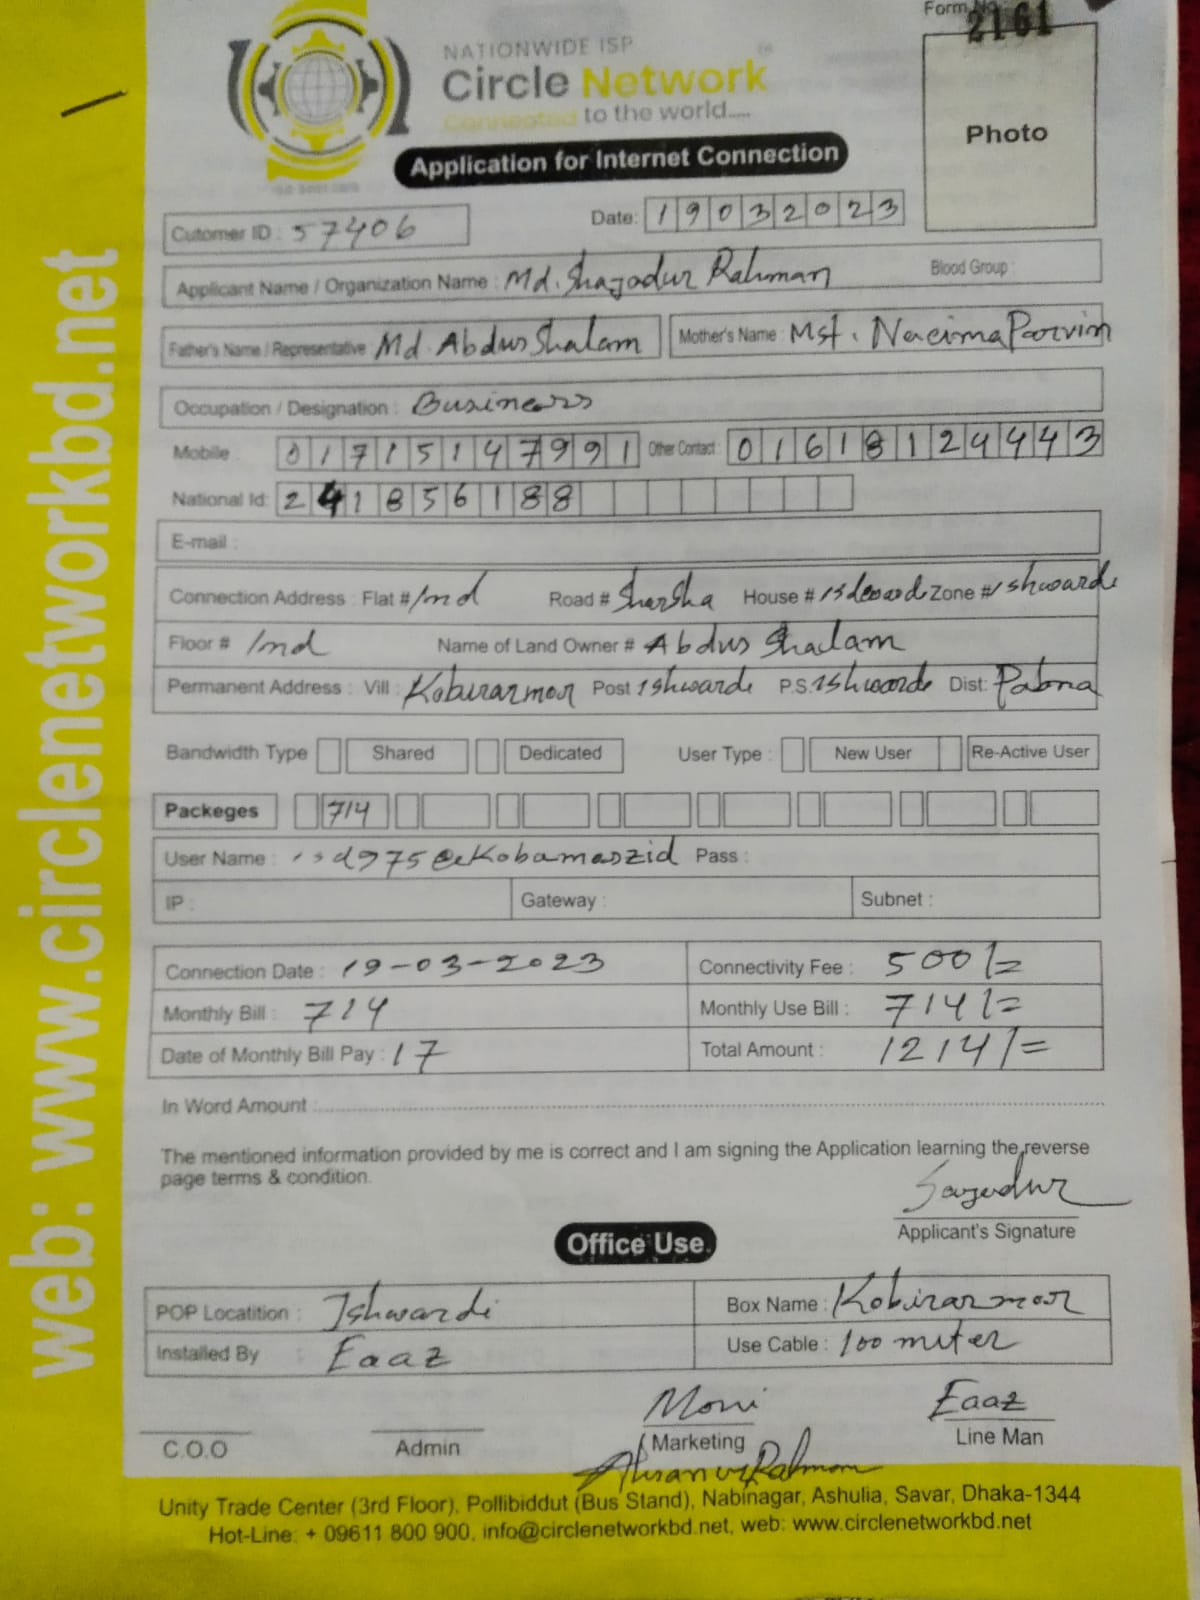 Form No.: 2161
NATIONWIDE ISP
Circle Network
Connected to the world.....
Photo
Application for Internet Connection
Cutomer ID : 57406 Date: 19032023
Applicant Name / Organization Name : Md. Shazadur Rahman Blood Group :
Father's Name / Representative Md. Abdus Shalam Mother's Name : Mst. Nacima Parvin
Occupation / Designation : Business
Mobile : 01715147991 Other Contact : 01618124443
National Id: 241856188
E-mail :
Connection Address : Flat # Ind Road # Shersha House # Zone # Ishwardi
Floor # Ind Name of Land Owner # Abdus Shalam
Permanent Address : Vill : Kobirarmor Post Ishwardi P.S. Ishwardi Dist: Pabna
Bandwidth Type Shared Dedicated User Type : New User Re-Active User
Packeges 714
User Name : isd975@ekobamaszid Pass :
IP : Gateway : Subnet :
Connection Date : 19-03-2023 Connectivity Fee : 500/=
Monthly Bill : 714 Monthly Use Bill : 714/=
Date of Monthly Bill Pay : 17 Total Amount : 1214/=
In Word Amount :
The mentioned information provided by me is correct and I am signing the Application learning the reverse
page terms & condition.
Sazadur
Applicant's Signature
Office Use
POP Locatition : Ishwardi Box Name : Kobirarmor
Installed By : Eaaz Use Cable : 100 miter
Moni Eaaz
C.O.O Admin Marketing Line Man
Ahsanur Rahman
Unity Trade Center (3rd Floor), Pollibiddut (Bus Stand), Nabinagar, Ashulia, Savar, Dhaka-1344
Hot-Line: + 09611 800 900, info@circlenetworkbd.net, web: www.circlenetworkbd.net
web: www.circlenetworkbd.net